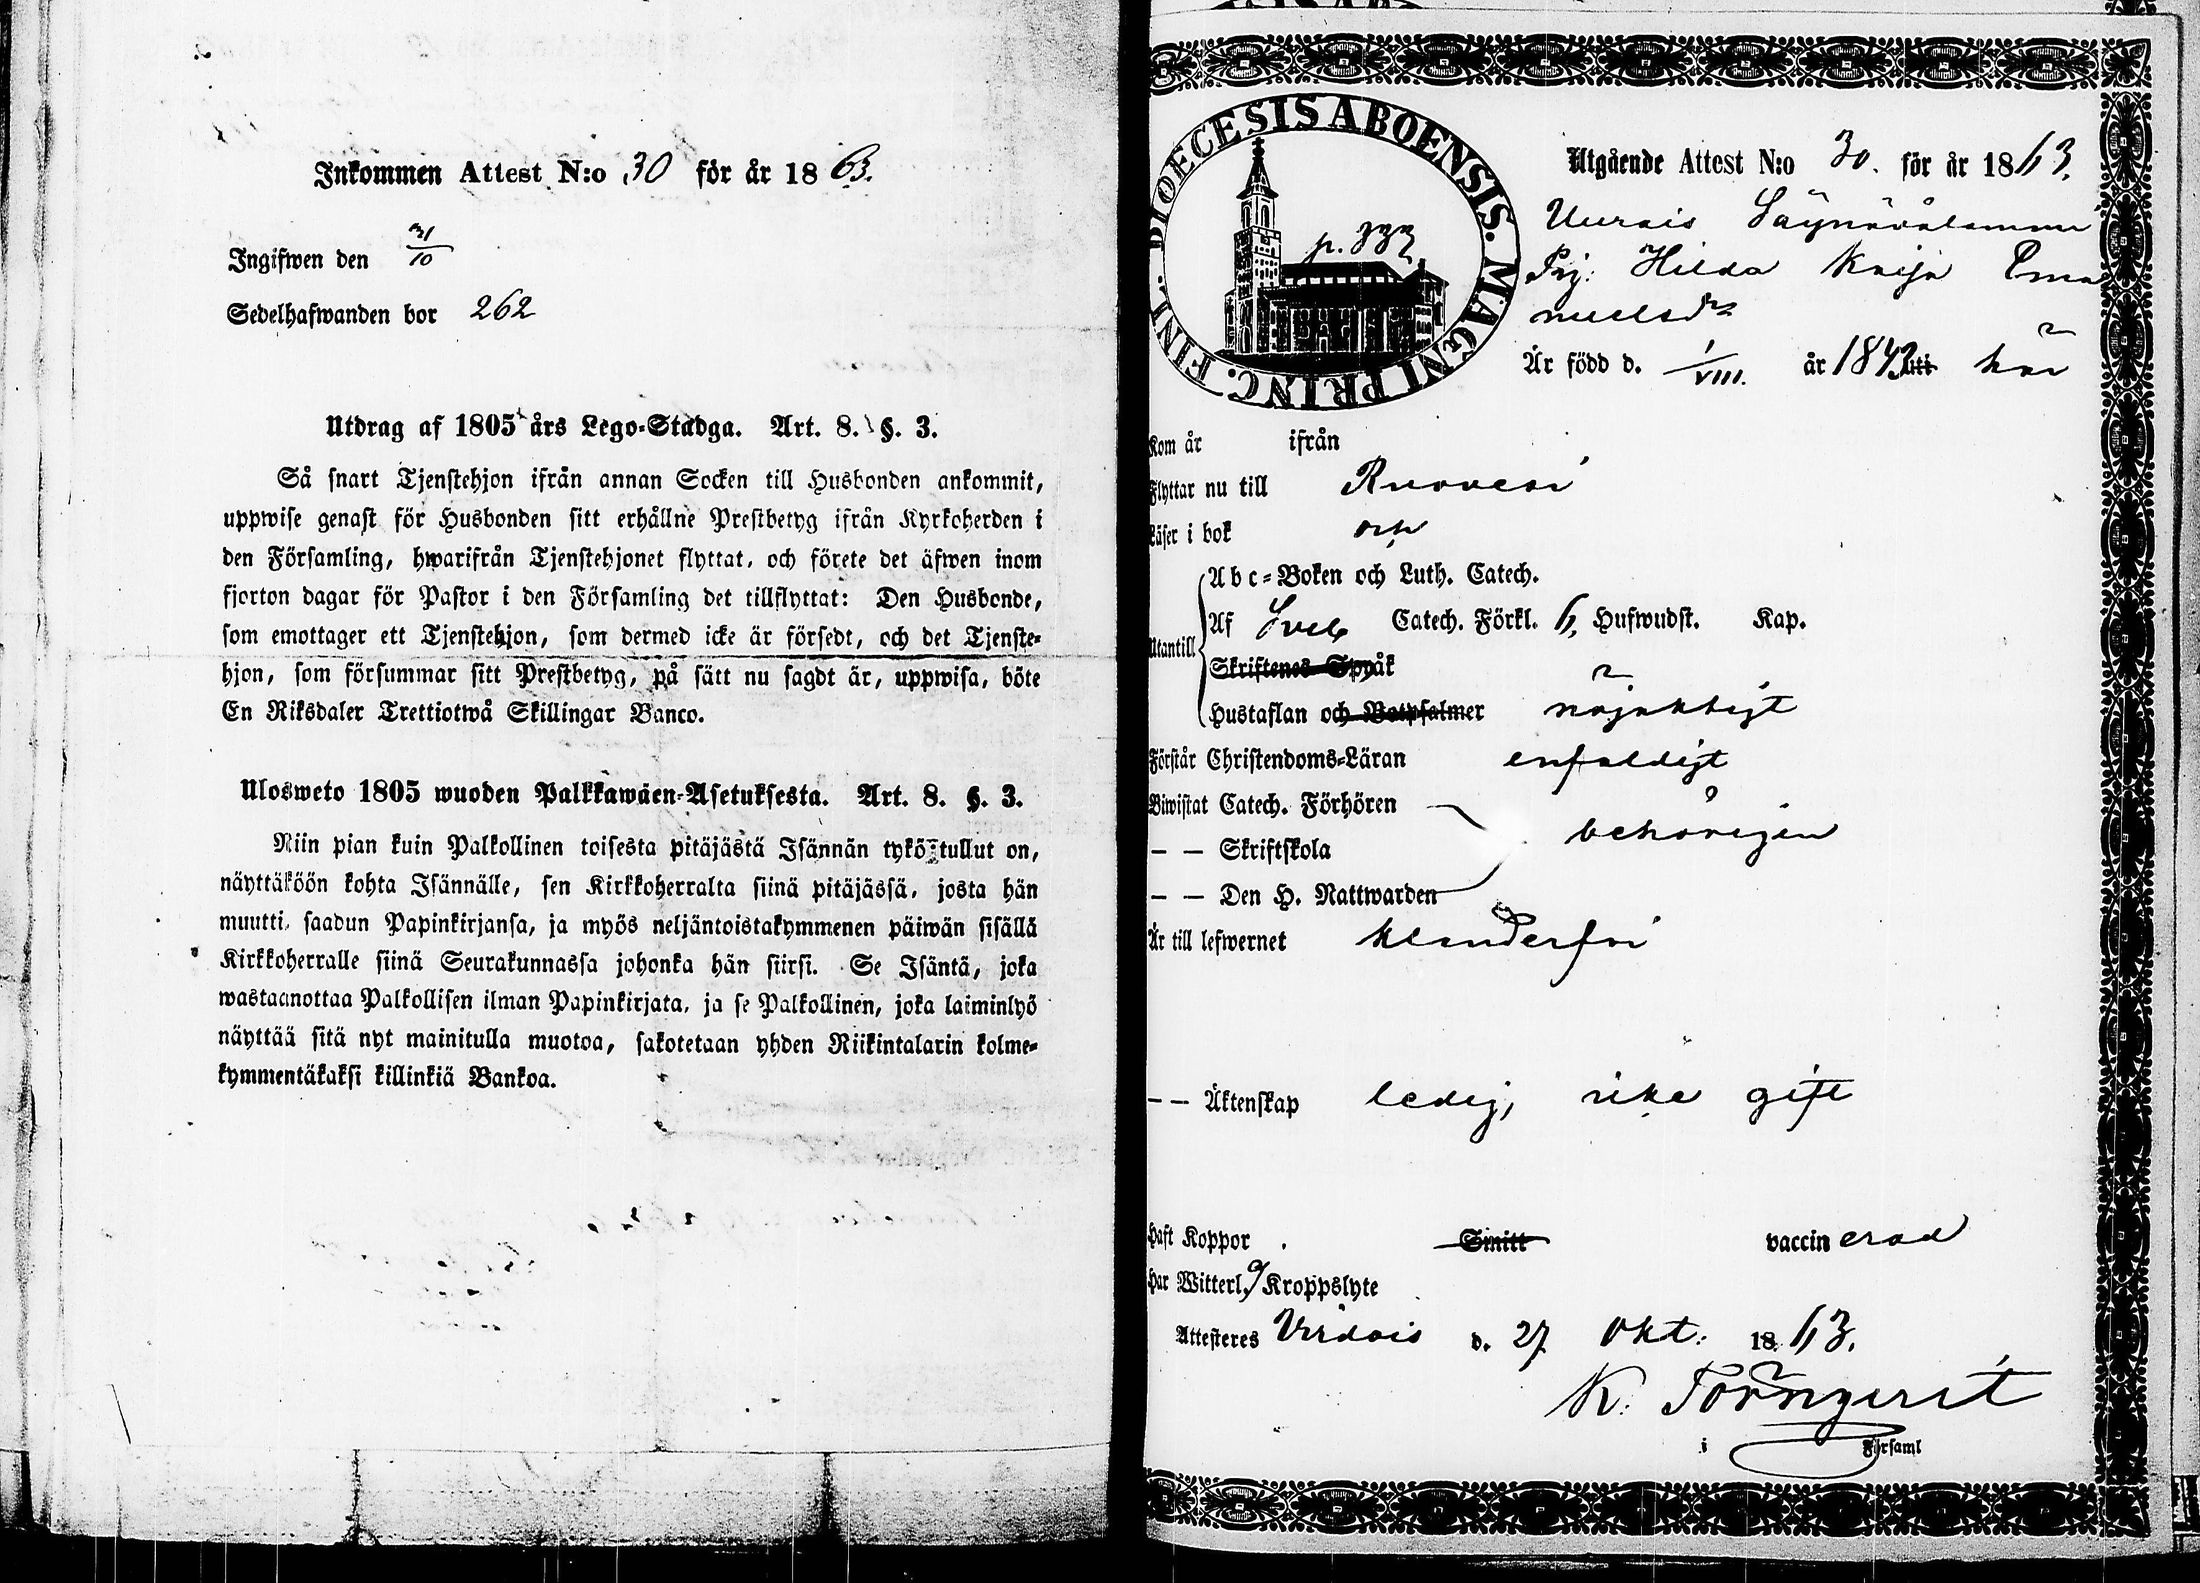 Inkommen Attest N:o 30 för år 1863.
Ingifwen den 31/10
Sedelhafwanden bor 262
Utdrag af 1805 års Lego-Stadga. Art. 8. §. 3.
Så snart Tjenstehjon ifrån annan Socken till Husbonden ankommit,
uppwise genast för Husbonden sitt erhållne Prestbetyg ifrån Kyrkoherden i
den Församling, hwarifrån Tjenstehjonet flyttat, och förete det äfwen inom
fjorton dagar för Pastor i den Församling det tillflyttat: Den Husbonde,
som emottager ett Tjenstehjon, som dermed icke är försedt, och det Tjenste-
hjon, som försummar sitt Prestbetyg, på sätt nu sagdt är, uppwisa, böte
En Riksdaler Trettiotwå Skillingar Banco.
Ulosweto 1805 wuoden Palkkawäen-Asetuksesta. Art. 8. §. 3.
Niin pian kuin Palkollinen toisesta pitäjästä Isännän tykö tullut on,
näyttäköön kohta Isännälle, sen Kirkkoherralta siinä pitäjässä, josta hän
muutti, saadun Papinkirjansa, ja myös neljäntoistakymmenen päiwän sisällä
Kirkkoherralle siinä Seurakunnassa johonka hän siirsi. Se Isäntä, joka
wastaanottaa Palkollisen ilman Papinkirjata, ja se Palkollinen, joka laiminlyö
näyttää sitä nyt mainitulla muotoa, sakotetaan yhden Riikintalarin kolme-
kymmentäkaksi killinkiä Bankoa.
DIOECESIS ABOENSIS. MAGNI PRINC. FINL.
Utgående Attest N:o 30. för år 1863.
Uurais
Pig. Hilda Kaisa Ema
nuelsdr
Är född d. 1/VIII. år 1843 uti här
Kom år ifrån
Flyttar nu till Ruovesi
Läser i bok
Utantill
Abc-Boken och Luth. Catech.
Af Sveb Catech. Förkl. 6. Hufwudst. Kap.
Skriftenes Språk
Hustaflan och Botpsalmer nöjaktigt
Förstår Christendoms-Läran enfaldigt
Biwistat Catech. Förhören
— — Skriftskola behörigen
— — Den H. Nattwarden
Är till lefwernet klanderfri
— — Äktenskap ledig, icke gift
Haft Koppor Smitt vaccinerad
Har Witterl. Kroppslyte
Attesteres Virdois d. 27 Okt: 1863.
K. Törnqvist
i Församl